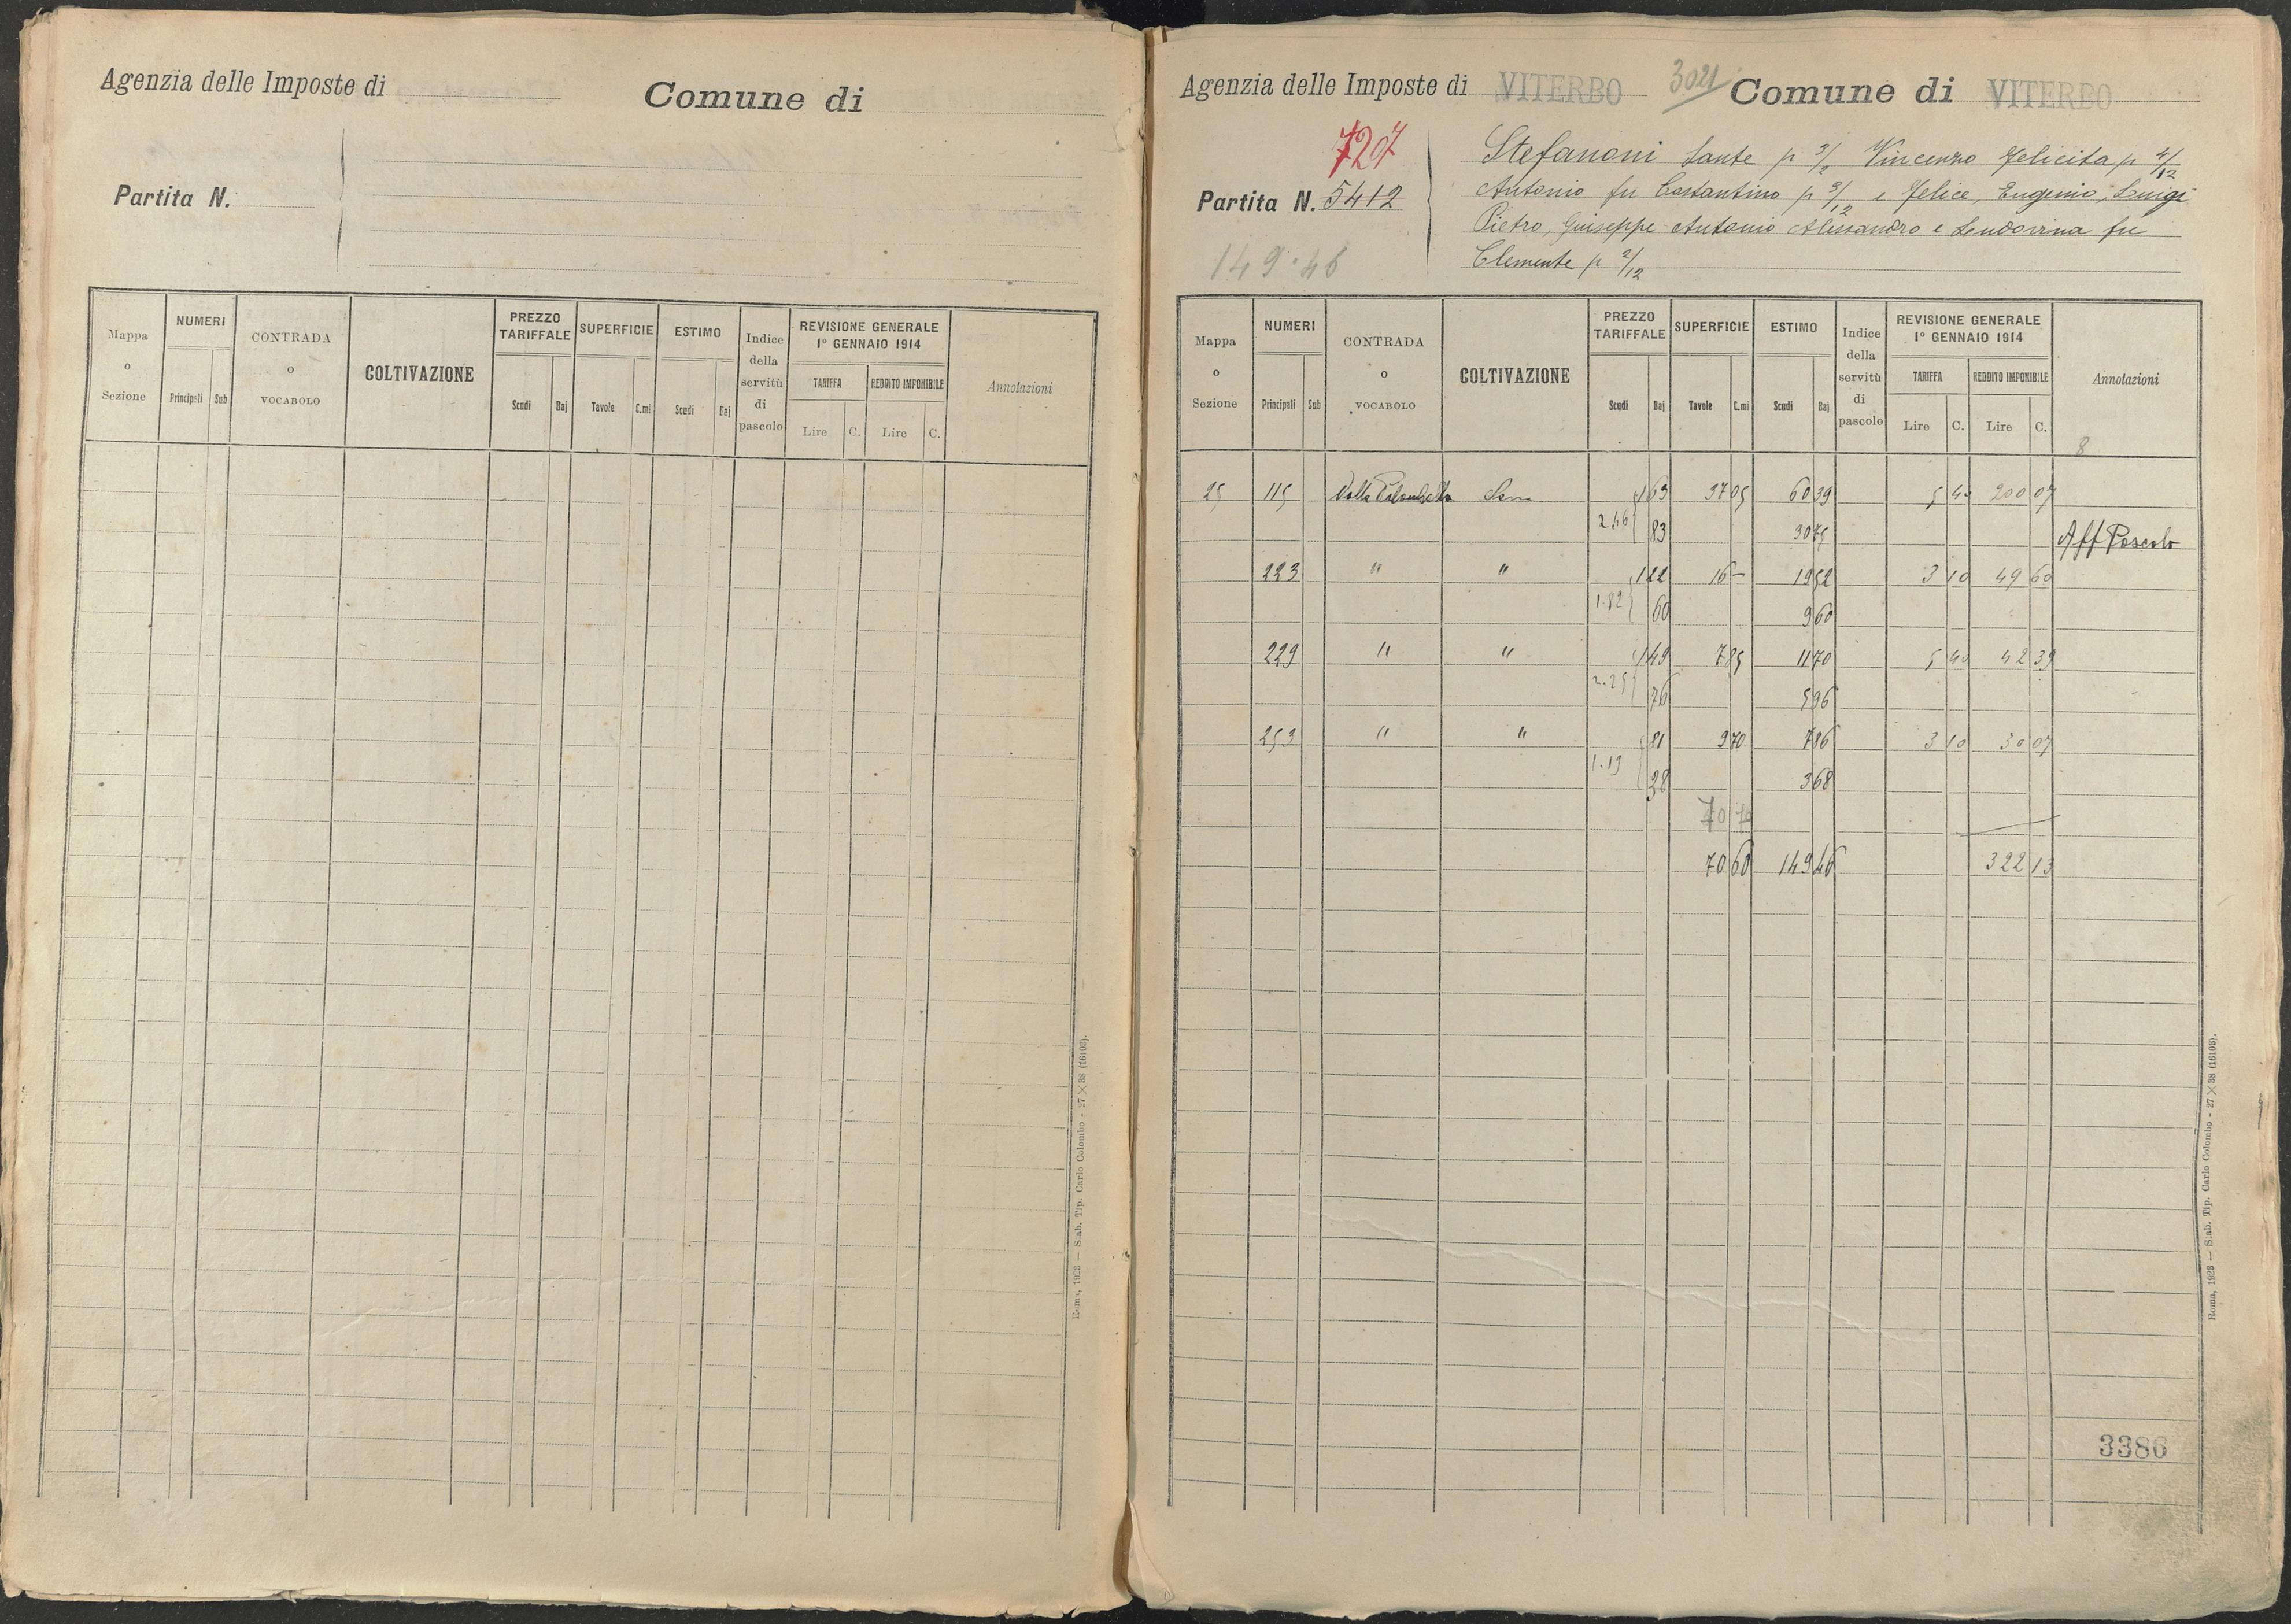 Agenzia delle Imposte di
Comune di
Partita N.
Mappa o Sezione
NUMERI
Principali Sub
CONTRADA o VOCABOLO
COLTIVAZIONE
PREZZO TARIFFALE
Scudi Baj
SUPERFICIE
Tavole C.mi
ESTIMO
Scudi Baj
Indice della servitù di pascolo
REVISIONE GENERALE
1º GENNAIO 1914
TARIFFA
Lire C.
REDDITO IMPONIBILE
Lire C.
Annotazioni
Roma, 1923 — Stab. Tip. Carlo Colombo - 27 × 38 (16103).
Agenzia delle Imposte di VITERBO 3021 Comune di VITERBO
7207
Partita N. 5412
149.46
Stefanoni Sante p 3/ Vincenzo Felicita p 4/12
Antonio fu Costantino p 3/12 e Felice, Eugenio, Luigi
Pietro, Giuseppe Antonio Alessandro e Lendovina fu
Clemente p 2/12
Mappa o Sezione
NUMERI
Principali Sub
CONTRADA o VOCABOLO
COLTIVAZIONE
PREZZO TARIFFALE
Scudi Baj
SUPERFICIE
Tavole C.mi
ESTIMO
Scudi Baj
Indice della servitù di pascolo
REVISIONE GENERALE
1º GENNAIO 1914
TARIFFA
Lire C.
REDDITO IMPONIBILE
Lire C.
Annotazioni
8
25 115 Sem 1 63 37 05 60 39 5 40 200 07
2.46 83 30 75 Aff Pascolo
223 " " 1 22 16 – 19 52 3 10 49 60
1.82 60 9 60
229 " " 1 49 7 85 11 70 5 40 42 39
2.25 76 5 96
253 " " 81 9 70 7 86 3 10 30 07
1.19 38 3 68
70 60 149 46 322 13
3386
Roma, 1923 — Stab. Tip. Carlo Colombo - 27 × 38 (16103).